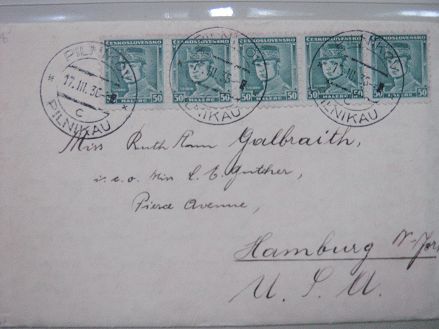 ČESKOSLOVENSKO ČESKOSLOVENSKO ČESKOSLOVENSKO ČESKOSLOVENSKO ČESKOSLOVENSKO
50 HALÉŘŮ 50 50 HALÉŘŮ 50 50 HALÉŘŮ 50 50 HALÉŘŮ 50 50 HALÉŘŮ 50
17.III.36
C
PILNIKAU
Miss Ruth Ann Galbraith,
i. c. o. Miss L. E. Gutcher,
Pierce Avenue,
Hamburg
U. S. A.